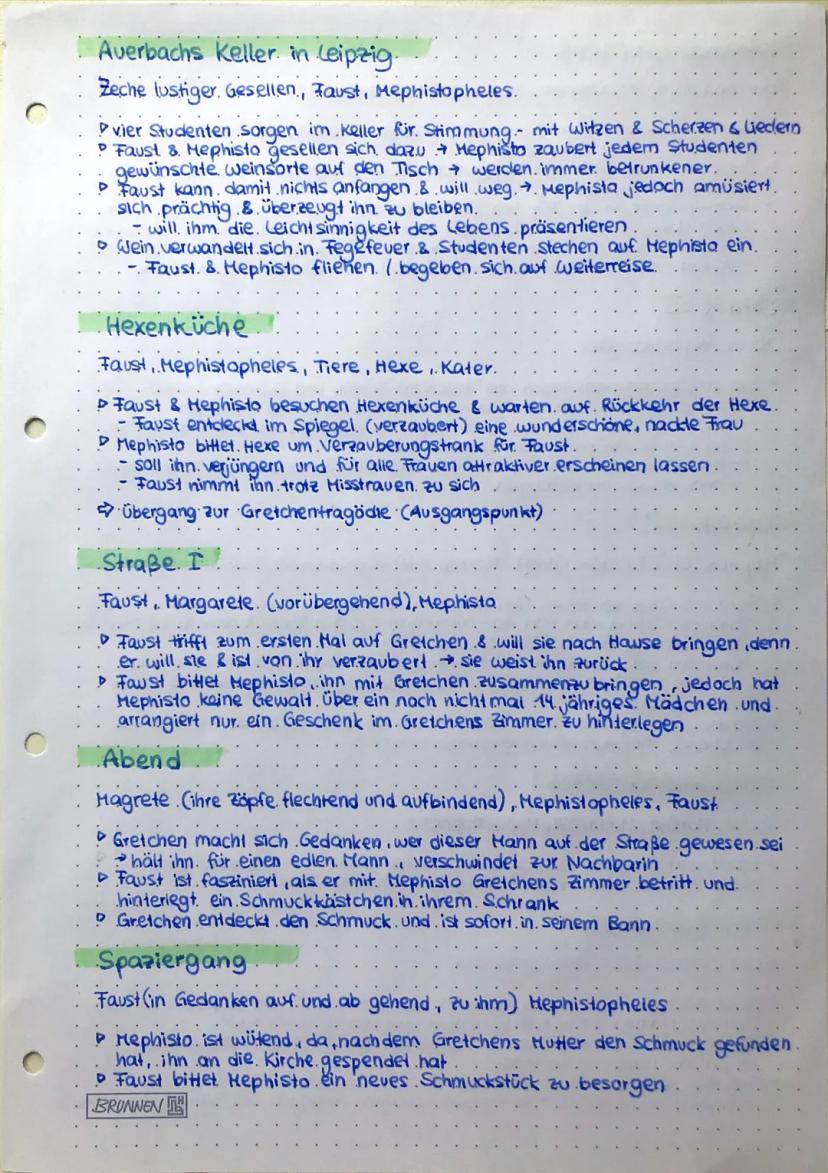 Auerbachs Keller in Leipzig
Zeche lustiger Gesellen, Faust, Mephistopheles
▹ vier Studenten sorgen im Keller für Stimmung - mit Witzen & Scherzen & Liedern
▹ Faust & Mephisto gesellen sich dazu → Mephisto zaubert jedem Studenten
gewünschte Weinsorte auf den Tisch → werden immer betrunkener
▹ Faust kann damit nichts anfangen & will weg → Mephisto jedoch amüsiert
sich prächtig & überzeugt ihn zu bleiben
- will ihm die Leichtsinnigkeit des Lebens präsentieren
▹ Wein verwandelt sich in Fegefeuer & Studenten stechen auf Mephisto ein
- Faust & Mephisto fliehen / begeben sich auf Weiterreise
Hexenküche
Faust, Mephistopheles, Tiere, Hexe, Kater
▹ Faust & Mephisto besuchen Hexenküche & warten auf Rückkehr der Hexe
- Faust entdeckt im Spiegel (verzaubert) eine wunderschöne, nackte Frau
▹ Mephisto bittet Hexe um Verzauberungstrank für Faust
- soll ihn verjüngern und für alle Frauen attraktiver erscheinen lassen
- Faust nimmt ihn trotz Misstrauen zu sich
⇨ Übergang zur Gretchentragödie (Ausgangspunkt)
Straße I
Faust, Margarete (vorübergehend), Mephisto
▹ Faust trifft zum ersten Mal auf Gretchen & will sie nach Hause bringen, denn
er will sie & ist von ihr verzaubert → sie weist ihn zurück
▹ Faust bittet Mephisto, ihn mit Gretchen zusammenzubringen, jedoch hat
Mephisto keine Gewalt über ein noch nicht mal 14 jähriges Mädchen und
arrangiert nur ein Geschenk im Gretchens Zimmer zu hinterlegen
Abend
Magrete (ihre Zöpfe flechtend und aufbindend), Mephistopheles, Faust
▹ Gretchen macht sich Gedanken, wer dieser Mann auf der Straße gewesen sei
→ hält ihn für einen edlen Mann, verschwindet zur Nachbarin
▹ Faust ist fasziniert, als er mit Mephisto Gretchens Zimmer betritt und
hinterlegt ein Schmuckkästchen in ihrem Schrank
▹ Gretchen entdeckt den Schmuck und ist sofort in seinem Bann
Spaziergang
Faust (in Gedanken auf und ab gehend, zu ihm) Mephistopheles
▹ Mephisto ist wütend, da, nachdem Gretchens Mutter den Schmuck gefunden
hat, ihn an die Kirche gespendet hat
▹ Faust bittet Mephisto ein neues Schmuckstück zu besorgen
BRUNNEN